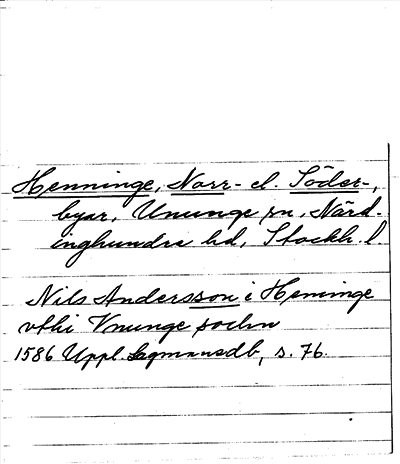 Henninge, Norr- el. Söder-,
byar, Ununge sn, Närd-
inghundra hd, Stockh. l.
Nils Andersson i Heninge
vthi Vnunge sochn
1586 Uppl. Lagmansdb, s. 76.